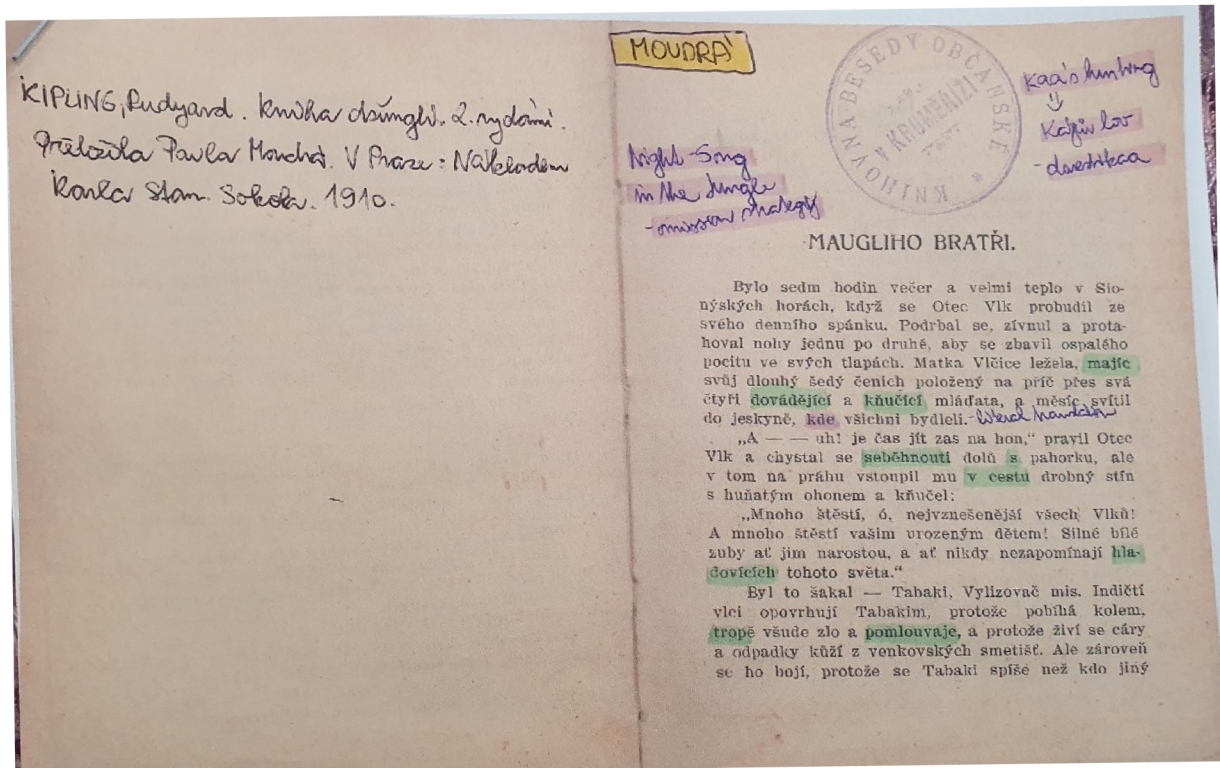 KIPLING, Rudyard. Kniha džunglí. 2. vydání.
Přeložila Pavla Moudrá. V Praze: Nákladem
Karla Stan. Sokola. 1910.
MOUDRÁ
Night-Song
in the Jungle
-omission strategy
KNIHOVNA BESEDY OBČANSKÉ
V KROMĚŘÍŽI
Kaa's hunting
⇓
Kájův lov
MAUGLIHO BRATŘI.
Bylo sedm hodin večer a velmi teplo v Sio-
nýských horách, když se Otec Vlk probudil ze
svého denního spánku. Podrbal se, zívnul a prota-
hoval nohy jednu po druhé, aby se zbavil ospalého
pocitu ve svých tlapách. Matka Vlčice ležela, majíc
svůj dlouhý šedý čenich položený na příč přes svá
čtyři dovádějící a kňučící mláďata, a měsíc svítil
do jeskyně, kde všichni bydleli. -literal translation
„A — — uh! je čas jít zas na hon,“ pravil Otec
Vlk a chystal se seběhnouti dolů s pahorku, ale
v tom na práhu vstoupil mu v cestu drobný stín
s huňatým ohonem a kňučel:
„Mnoho štěstí, ó, nejvznešenější všech Vlků!
A mnoho štěstí vašim urozeným dětem! Silné bílé
zuby ať jim narostou, a ať nikdy nezapomínají hla-
dovících tohoto světa.“
Byl to šakal — Tabaki, Vylizovač mis. Indičtí
vlci opovrhují Tabakim, protože pobíhá kolem,
tropě všude zlo a pomlouvaje, a protože živí se cáry
a odpadky kůží z venkovských smetišť. Ale zároveň
se ho bojí, protože se Tabaki spíše než kdo jiný